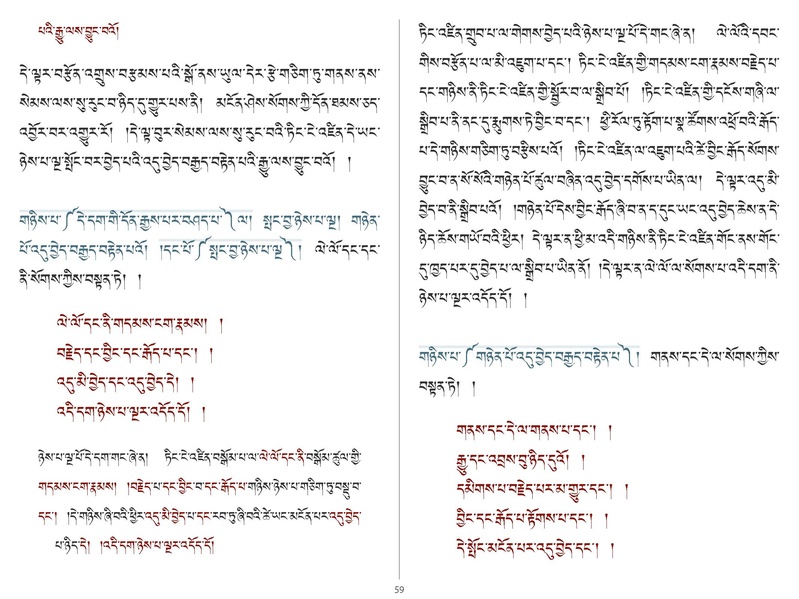 པའི་རྒྱུ་ལས་བྱུང་བའོ།
དེ་ལྟར་བརྩོན་འགྲུས་བརྩམས་པའི་སྒོ་ནས་ཡུལ་དེར་རྩེ་གཅིག་ཏུ་གནས་ནས་
སེམས་ལས་སུ་རུང་བ་ཉིད་དུ་གྱུར་པས་ནི། མངོན་ཤེས་སོགས་ཀྱི་དོན་ཐམས་ཅད་
འབྱོར་བར་འགྱུར་རོ། །དེ་ལྟ་བུར་སེམས་ལས་སུ་རུང་བའི་ཏིང་ངེ་འཛིན་དེ་ཡང་
ཉེས་པ་ལྔ་སྤོང་བར་བྱེད་པའི་འདུ་བྱེད་བརྒྱད་བསྟེན་པའི་རྒྱུ་ལས་བྱུང་བའོ། །
གཉིས་པ་༼དེ་དག་གི་དོན་རྒྱས་པར་བཤད་པ་༽ལ། སྤང་བྱ་ཉེས་པ་ལྔ། གཉེན་
པོ་འདུ་བྱེད་བརྒྱད་བསྟེན་པའོ། །དང་པོ་༼སྤང་བྱ་ཉེས་པ་ལྔ་༽། ལེ་ལོ་དང་དང་
ནི་སོགས་ཀྱིས་བསྟན་ཏེ། །
ལེ་ལོ་དང་ནི་གདམས་ངག་རྣམས། །
བརྗེད་དང་བྱིང་དང་རྒོད་པ་དང་། །
འདུ་མི་བྱེད་དང་འདུ་བྱེད་དེ། །
འདི་དག་ཉེས་པ་ལྔར་འདོད་དོ། །
ཉེས་པ་ལྔ་པོ་དེ་དག་གང་ཞེ་ན། ཏིང་ངེ་འཛིན་བསྒོམ་པ་ལ་ལེ་ལོ་དང་ནི་བསྒོམ་ཚུལ་གྱི་
གདམས་ངག་རྣམས། །བརྗེད་པ་དང་བྱིང་བ་དང་རྒོད་པ་གཉིས་ཉེས་པ་གཅིག་ཏུ་བསྡུ་བ་
དང་། །དེ་གཉིས་ཞི་བའི་ཕྱིར་འདུ་མི་བྱེད་པ་དང་རབ་ཏུ་ཞི་བའི་ཚེ་ཡང་མངོན་པར་འདུ་བྱེད་
པ་ཉིད་དེ། །འདི་དག་ཉེས་པ་ལྔར་འདོད་དོ།
ཏིང་འཛིན་གྲུབ་པ་ལ་གེགས་བྱེད་པའི་ཉེས་པ་ལྔ་པོ་དེ་གང་ཞེ་ན། ལེ་ལོའི་དབང་
གིས་བརྩོན་པ་ལ་མི་འཇུག་པ་དང་། ཏིང་ངེ་འཛིན་གྱི་གདམས་ངག་རྣམས་བརྗེད་པ་
དང་གཉིས་ནི་ཏིང་ངེ་འཛིན་གྱི་སྦྱོར་བ་ལ་སྒྲིབ་པོ། །ཏིང་ངེ་འཛིན་གྱི་དངོས་གཞི་ལ་
སྒྲིབ་པ་ནི་ནང་དུ་རྨུགས་ཏེ་བྱིང་བ་དང་། ཕྱི་རོལ་ཏུ་རྟོག་པ་སྣ་ཚོགས་འཕྲོ་བའི་རྒོད་
པ་དེ་གཉིས་གཅིག་ཏུ་བརྩིས་པའོ། །ཏིང་ངེ་འཛིན་ལ་འཇུག་པའི་ཚེ་བྱིང་རྒོད་སོགས་
བྱུང་བ་ན་སོ་སོའི་གཉེན་པོ་ཚུལ་བཞིན་འདུ་བྱེད་དགོས་པ་ཡིན་ལ། དེ་ལྟར་འདུ་མི་
བྱེད་བ་ནི་སྒྲིབ་པའོ། །གཉེན་པོ་དེས་བྱིང་རྒོད་ཞི་བ་ན་ད་དུང་ཡང་འདུ་བྱེད་ཆེས་ན་དེ་
ཉིད་ཆོས་གཡོ་བའི་ཕྱིར། དེ་ལྟར་ན་ཕྱི་མ་འདི་གཉིས་ནི་ཏིང་ངེ་འཛིན་གོང་ནས་གོང་
དུ་ཁྱད་པར་དུ་བྱེད་པ་ལ་སྒྲིབ་པ་ཡིན་ནོ། །དེ་ལྟར་ན་ལེ་ལོ་ལ་སོགས་པ་འདི་དག་ནི་
ཉེས་པ་ལྔར་འདོད་དོ། །
གཉིས་པ་༼གཉེན་པོ་འདུ་བྱེད་བརྒྱད་བསྟེན་པ་༽། གནས་དང་དེ་ལ་སོགས་ཀྱིས་
བསྟན་ཏེ། །
གནས་དང་དེ་ལ་གནས་པ་དང་། །
རྒྱུ་དང་འབྲས་བུ་ཉིད་དུའོ། །
དམིགས་པ་བརྗེད་པར་མ་གྱུར་དང་། །
བྱིང་དང་རྒོད་པ་རྟོགས་པ་དང་། །
དེ་སྤོང་མངོན་པར་འདུ་བྱེད་དང་། །
59